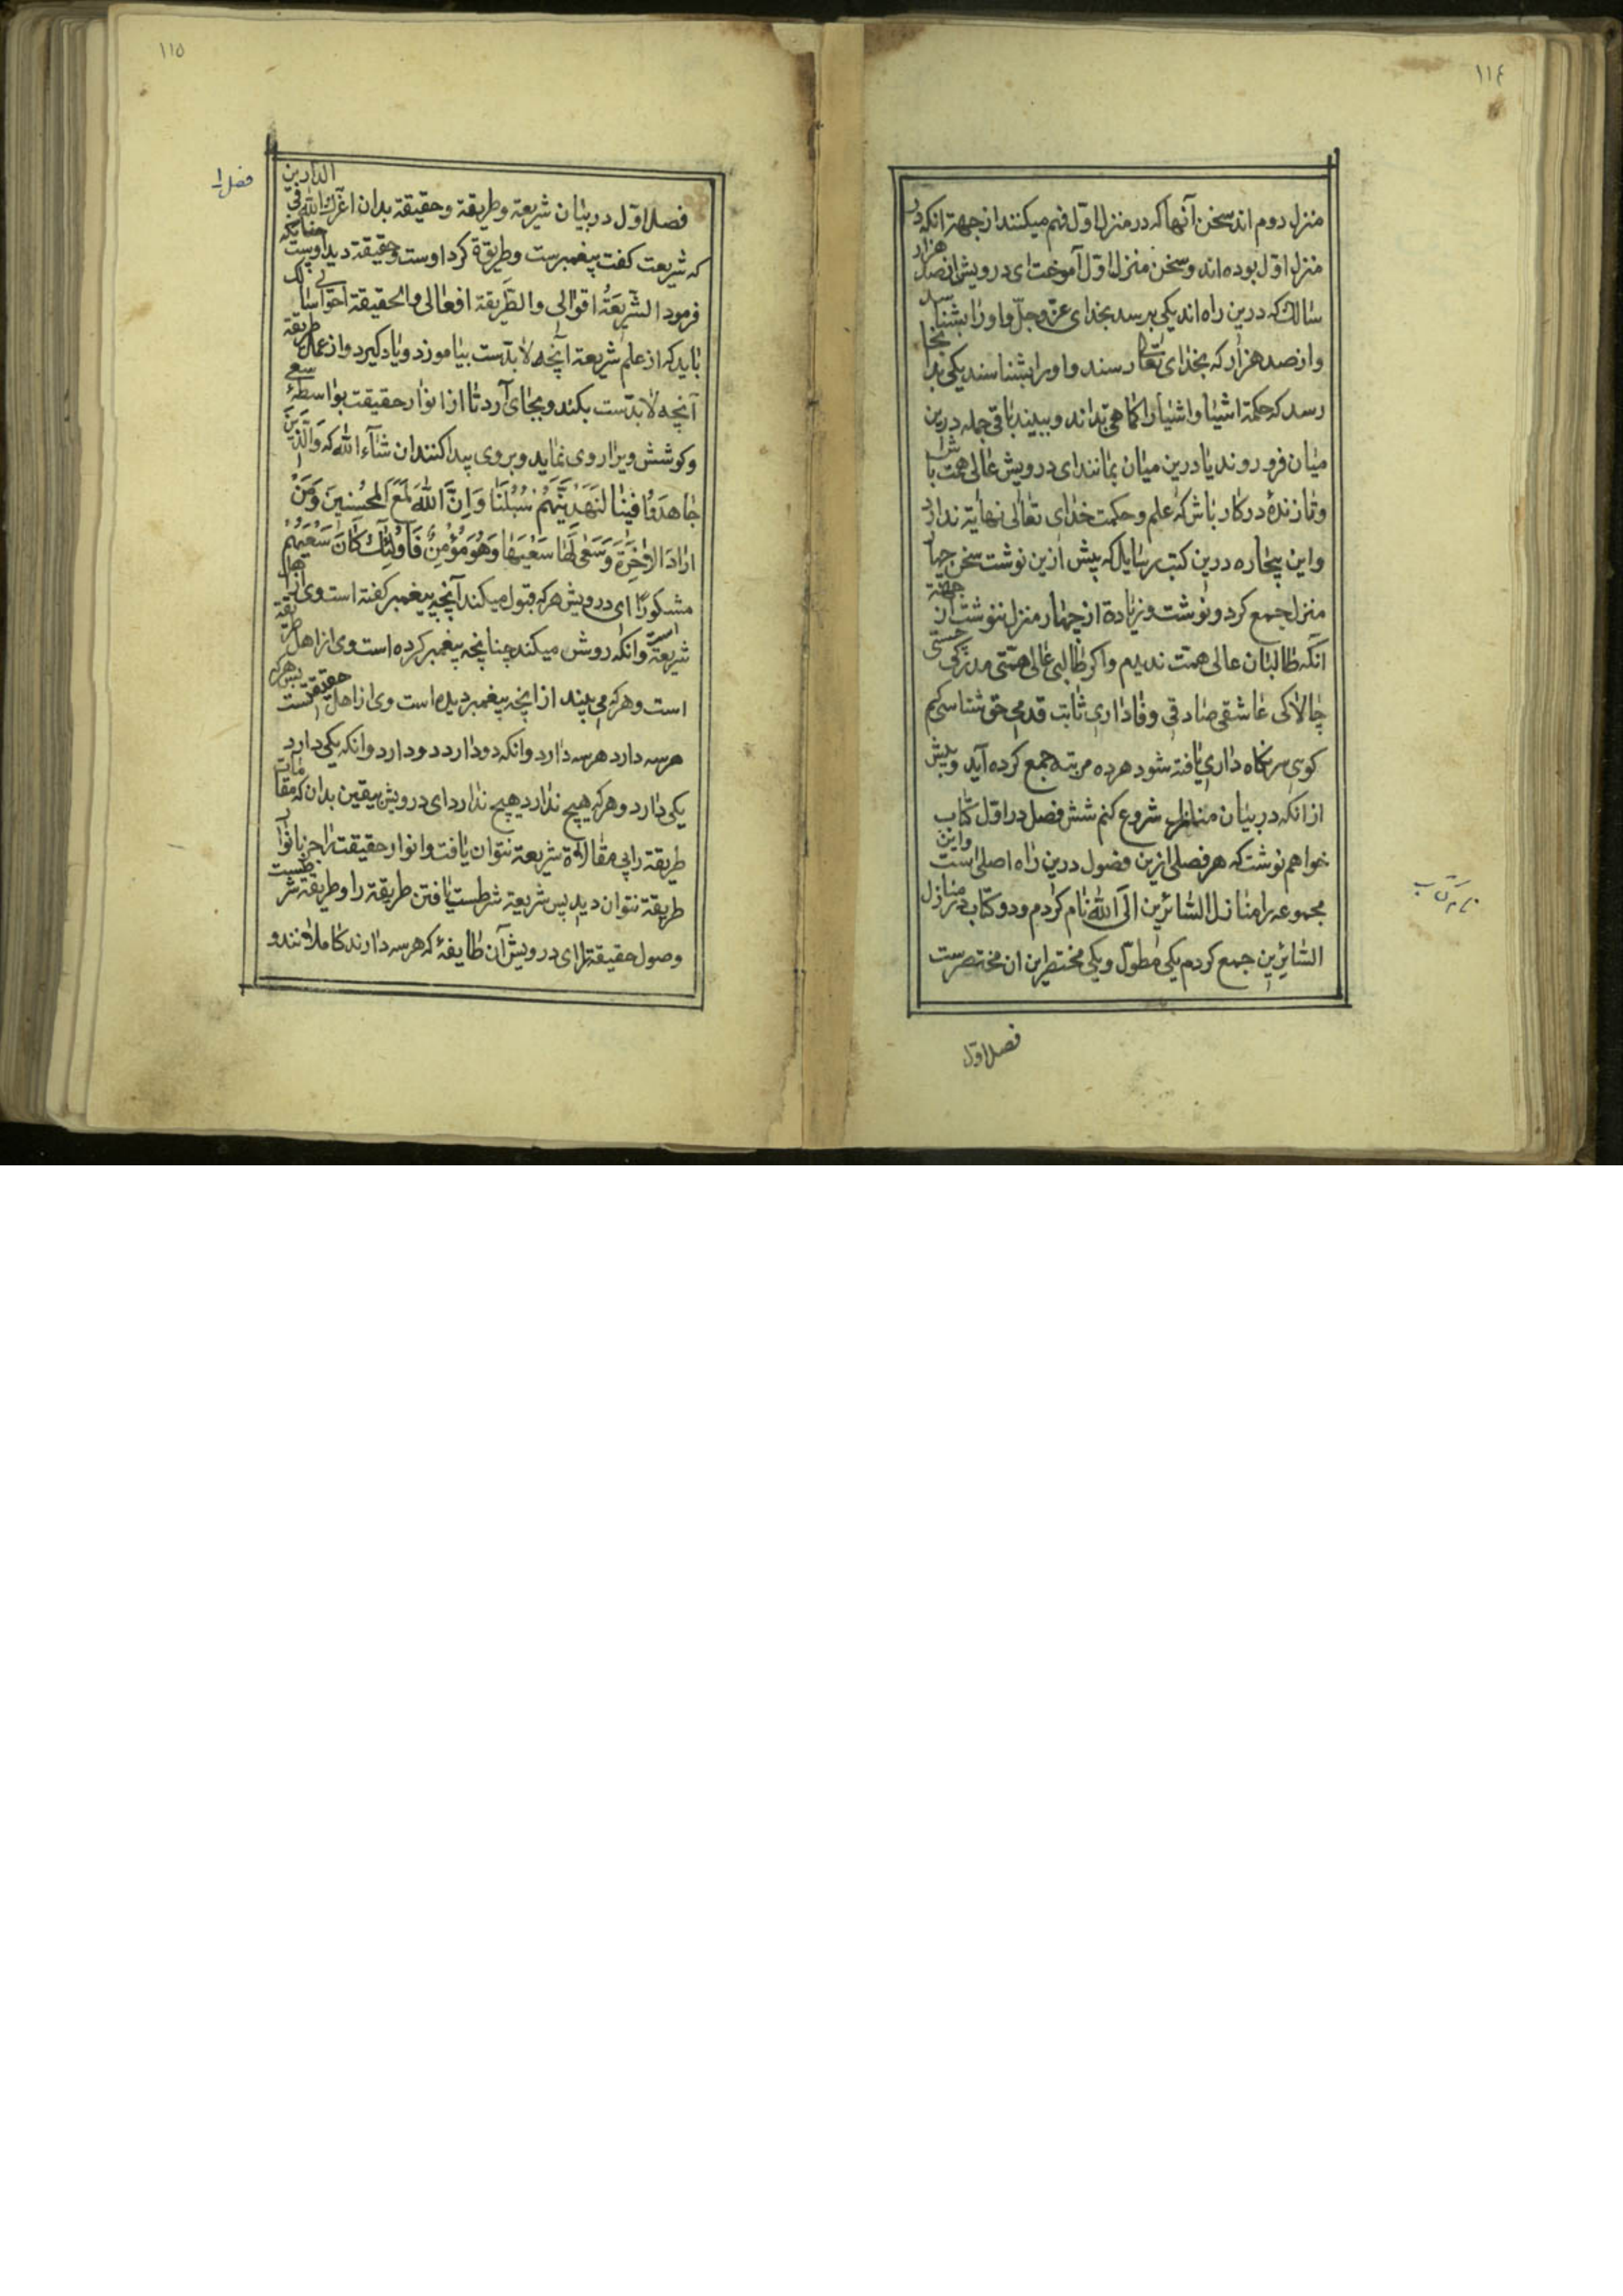 ١١٤
منزل دوم اند سخن آنها که در منزل اول فهم میکنند از جهة انکه در
منزل اوّل بوده اند و سخن منزل اوّل آموخت ای درویش از صد هزار
سالك که درین راه اند یکی برسد بخدای عزّ و جلّ و اورا بشناسد
و از صد هزار که بخدای تعالی رسند و اورا بشناسند یکی بدانجا
رسد که حکمة اشیا و اشیا را کماهی بداند و ببیند باقی جمله درین
میان فرو روند یا درین میان بمانند ای درویش عالی همّت باش
و تا زندهٔ در کار باش که علم و حکمت خدای تعالی نهایة ندارد
و این بیچاره درین کتب رسایل که پیش ازین نوشت سخن چهار
منزل جمع کرد و نوشت و زیادة از چهار منزل ننوشت از جهة
انکه طالبان عالی همّت ندیدم و اکر طالبی عالی همّتی مدرکی چستی
چالاکی عاشقی صادقی وفاداری ثابت قدمی حق شناسی کم
کوی سر نکاه داری یافته شود هرده مرتبه جمع کرده آید و پیش
از انکه در بیان منازل شروع کنم شش فصل در اوّل کتاب
خواهم نوشت که هر فصلی ازین فصول درین راه اصلی است و این
مجموعه را منازل السّائرین الی الله نام کردم و دو کتاب در منازل
السّائرین جمع کردم یکی مطوّل و یکی مختصر این ان مختصرست
فصل اوّل
نام کتاب
١١٥
فصل ١
فصل اوّل در بیان شریعة و طریقة و حقیقة بدان اعزّك الله فی الدّارین
که شریعت کفت پیغمبرست و طریقة کرد اوست و حقیقة دید اوست چنانکه
فرمود الشّریعَةُ اقوالی و الطّریقة افعالی و الحقیقة احوالی سالك
باید که از علم شریعة آنچه لابدّست بیاموزد و یاد کیرد و از عمل طریقة
آنچه لابدّست بکند و بجای آرد تا از انوار حقیقت بواسطهٔ سعی
و کوشش ویرا روی نماید و بروی پیدا کنند ان شآء الله که وَالَّذِینَ
جَاهَدُوا فِینَا لَنَهْدِیَنَّهُمْ سُبُلَنَا وَاِنَّ اللهَ لَمَعَ الْمُحْسِنِینَ وَمَنْ
ارَادَ الاٰخِرَةَ وَسَعٰی لَهَا سَعْیَهَا وَهُوَ مُؤْمِنٌ فَاُولٰئِكَ كَانَ سَعْیُهُمْ
مشکورًا ای درویش هر که قبول میکند آنچه پیغمبر کفته است وی از اهل
شریعة است و انکه روش میکند چنانچه پیغمبر کرده است وی از اهل طریقة
است و هر که می بیند از انچه پیغمبر دیده است وی از اهل حقیقتست پس هر که
هر سه دارد هر سه دارد و انکه دو دارد دو دارد و انکه یکی دارد
یکی دارد و هر که هیچ ندارد هیچ ندارد ای درویش بیقین بدان که مقامات
طریقة را بی مقالاة شریعة نتوان یافت و انوار حقیقت را جز بانوار
طریقة نتوان دید پس شریعة شرطست یافتن طریقة را و طریقة شرطست
وصول حقیقة را ای درویش آن طایفهٔ که هر سه دارند کاملانند و